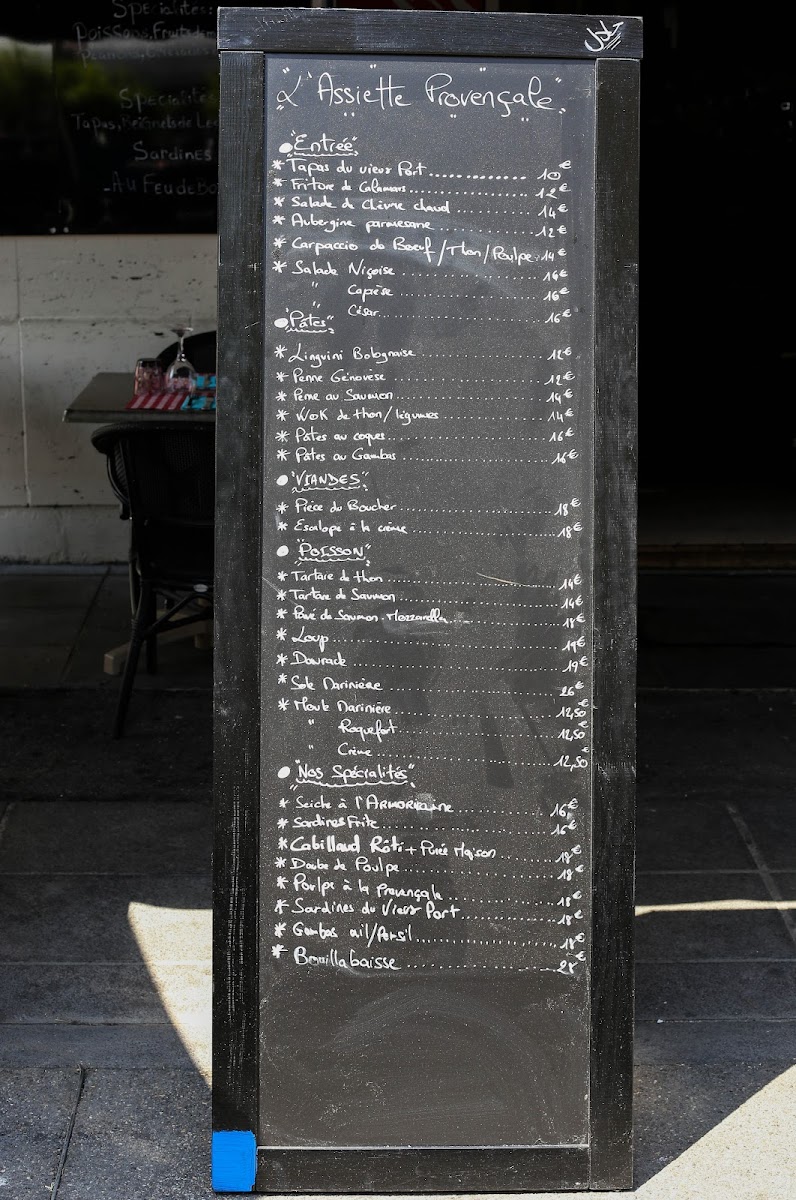 Spécialités:
Poissons, Fruits de
Spécialités
Tapas, Beignets de Le
Sardines
- Au Feu de Bo
"L'Assiette Provençale"
● "Entrée"
* Tapas du vieux Port .......... 10€
* Friture de Calamars .......... 12€
* Salade de Chèvre chaud .......... 14€
* Aubergine parmesane .......... 12€
* Carpaccio de Boeuf/Thon/Poulpe . 14€
* Salade Niçoise .......... 14€
" Caprèse .......... 16€
" César .......... 16€
● "Pâtes"
* Linguini Bolognaise .......... 12€
* Penne Génovèse .......... 12€
* Penne au Saumon .......... 14€
* WOK de thon/légumes .......... 14€
* Pâtes au coques .......... 16€
* Pâtes au Gambas .......... 16€
● "VIANDES"
* Pièce du Boucher .......... 18€
* Escalope à la crème .......... 18€
● "POISSON"
* Tartare de thon .......... 14€
* Tartare de Saumon .......... 14€
* Pavé de Saumon Mozzarella .......... 18€
* Loup .......... 19€
* Daurade .......... 19€
* Sole Marinière .......... 26€
* Moule Marinière .......... 12,50€
" Roquefort .......... 12,50€
" Crème .......... 12,50€
● "Nos Spécialités"
* Seiche à l'Armoricaine .......... 16€
* Sardines Frite .......... 16€
* Cabillaud Rôti + Purée Maison .......... 18€
* Daube de Poulpe .......... 18€
* Poulpe à la Provençale .......... 18€
* Sardines du Vieux Port .......... 18€
* Gambas ail/Persil .......... 18€
* Bouillabaisse .......... 28€